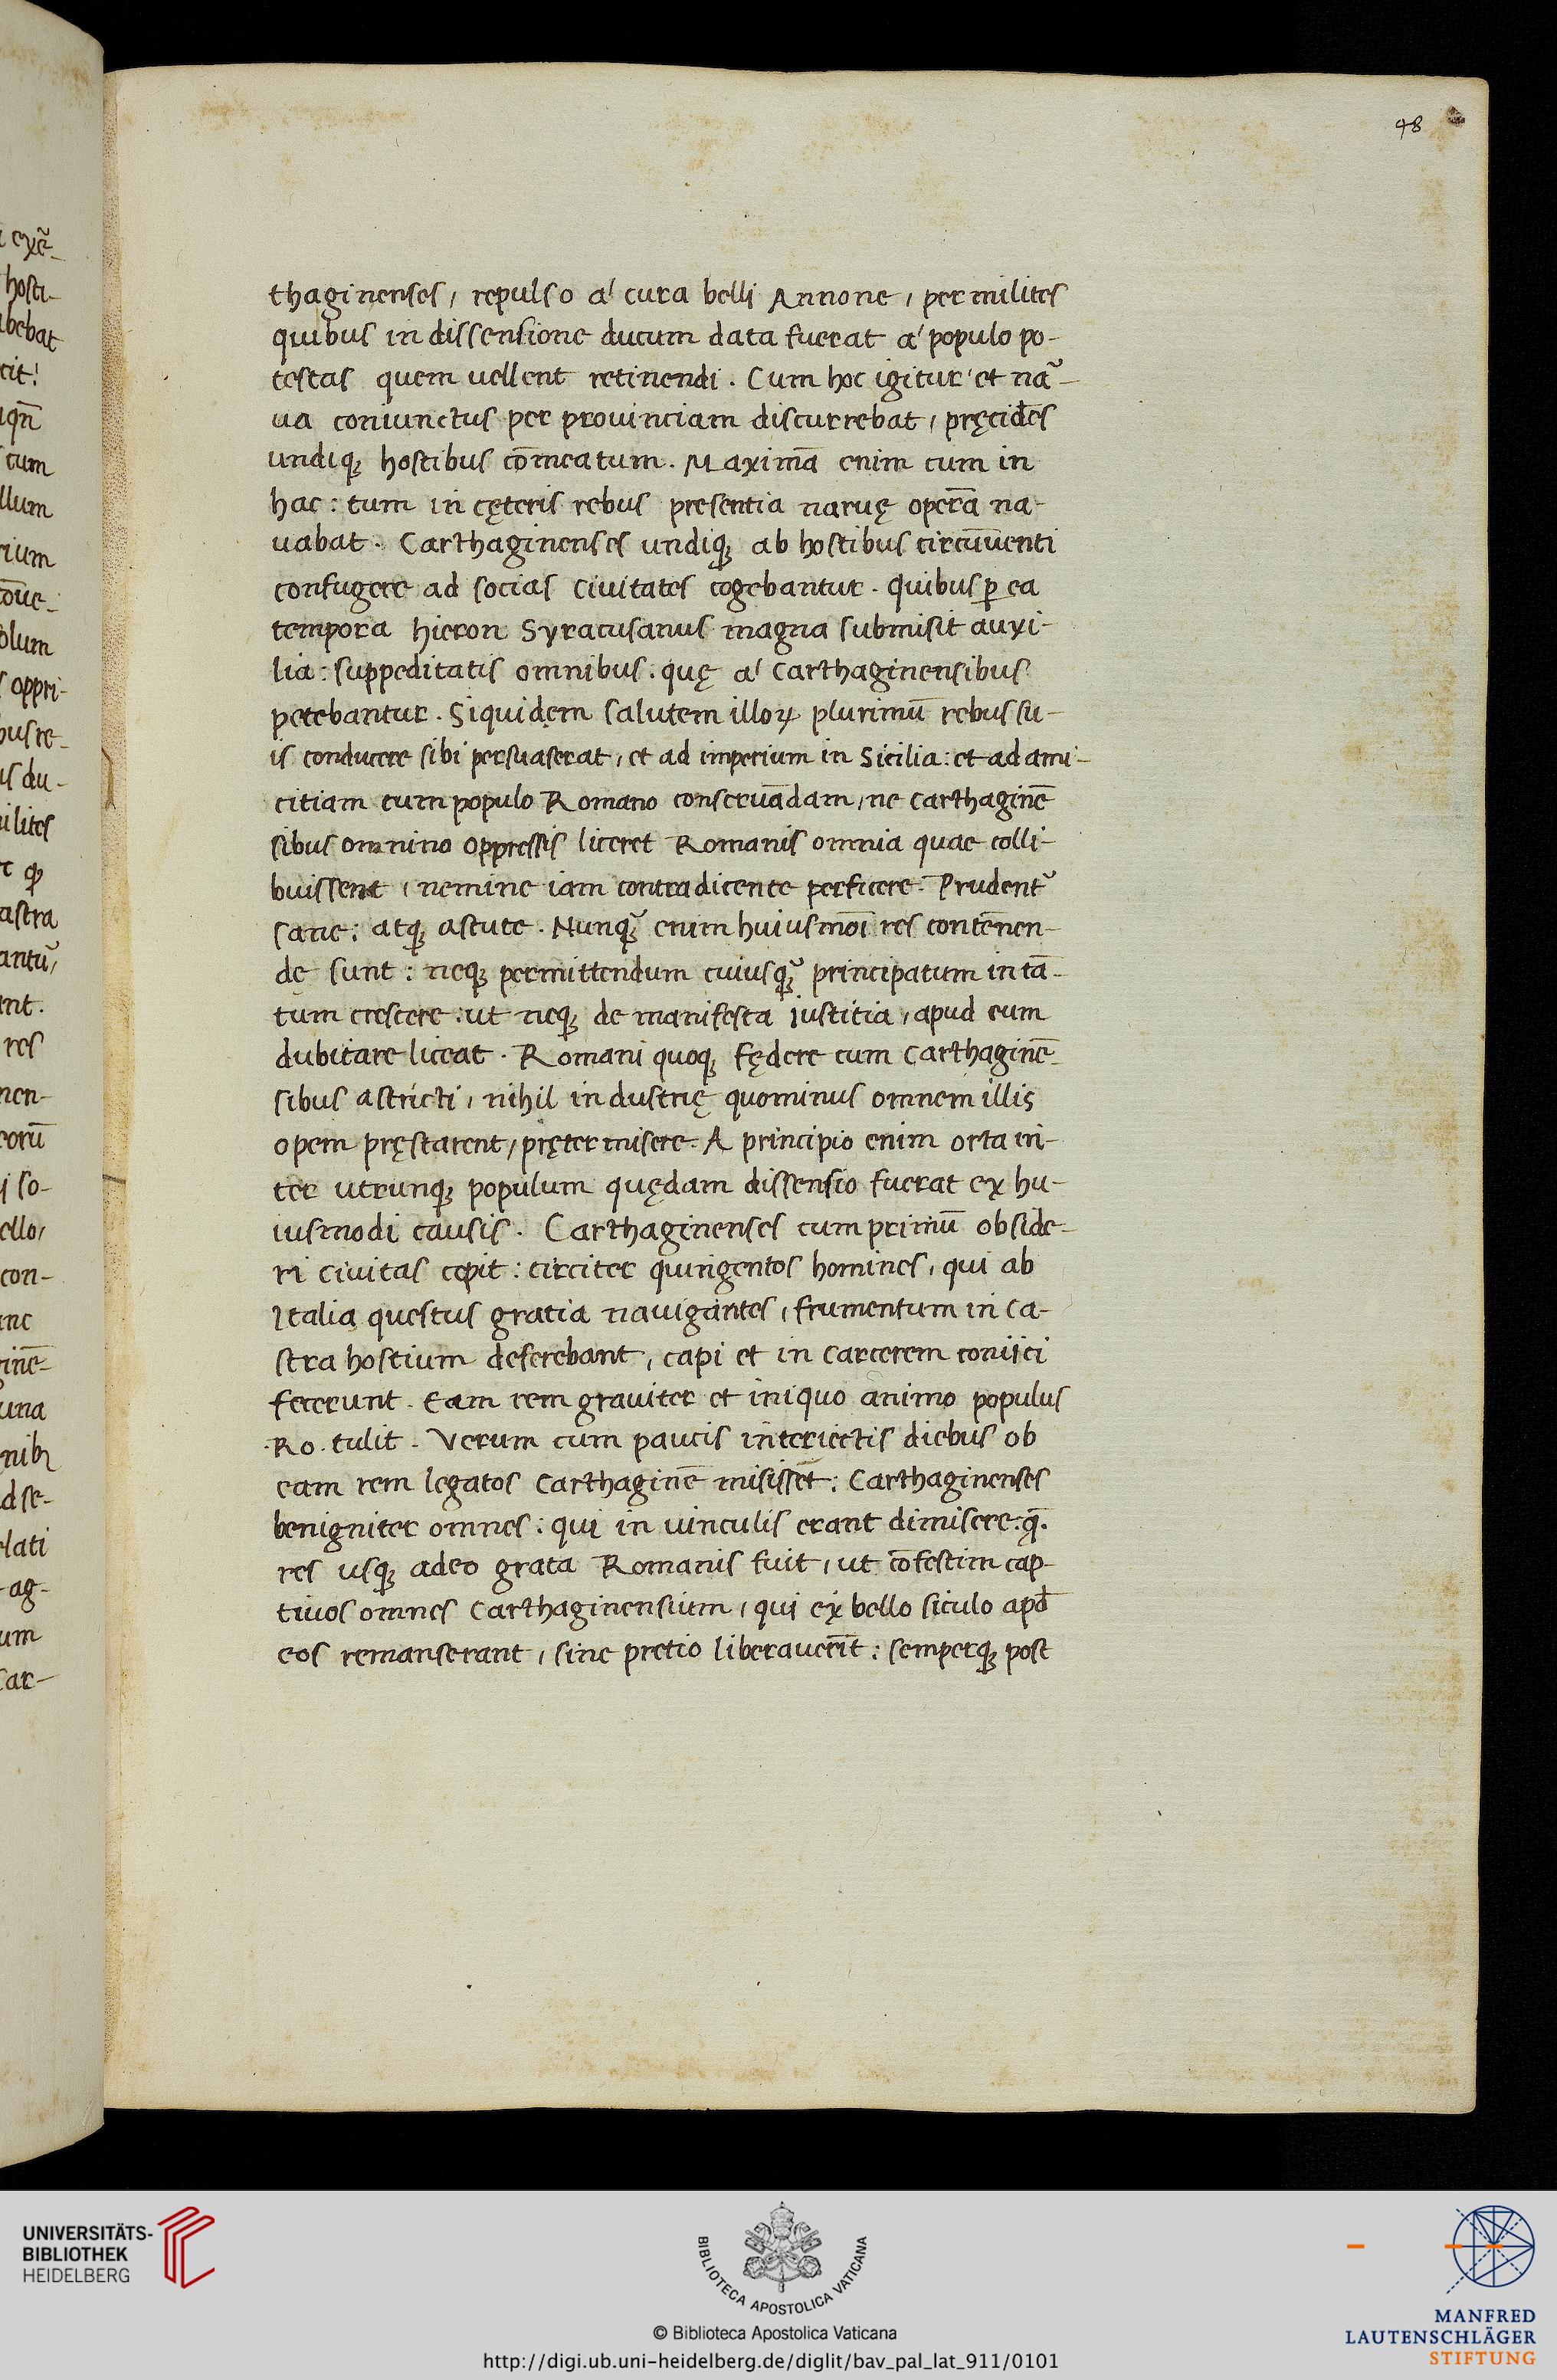 48
thaginenses, repulso a' cura belli Annone, per milites
quibus in dissensione ducum data fuerat a' populo po-
testas quem uellent retinendi. Cum hoc igitur et nar-
ua coniunctus per prouinciam discurrebat, pręcidēs
undiq; hostibus cōmeatum. Maximā enim cum in
hac: tum in cęteris rebus presentia naruę operā na-
uabat. Carthaginenses undiq; ab hostibus circūuenti
confugere ad socias ciuitates cogebantur. Quibus ꝑ ea
tempora hieron Syracusanus magna submisit auxi-
lia: suppeditatis omnibus. quę a' Carthaginensibus
petebantur. Siquidem salutem illoꝝ plurimū rebus su-
is conducere sibi persuaserat, et ad imperium in Sicilia: et ad ami-
citiam cum populo Romano conseruādam, ne Carthaginē
sibus omnino oppressis liceret Romanis omnia quae colli-
buissent, nemine iam contradicente perficere. Prudentˀ
sane: atq; astute. Nunqᷓ enim huiusmōi res contēnen-
de sunt: neq; permittendum cuiusqᷓ principatum in tā-
tum crescere: ut neq; de manifesta iustitia, apud eum
dubitare liceat. Romani quoq; fędere cum Carthaginē-
sibus astricti, nihil industrię quominus omnem illis
opem pręstarent, pręter misere. A principio enim orta in-
ter utrunq; populum quędam dissensio fuerat ex hu-
iusmodi causis. Carthaginenses cum primū obside-
ri ciuitas cępit: circiter quingentos homines, qui ab
Italia questus gratia nauigantes, frumentum in ca-
stra hostium deferebant, capi et in carcerem coniici
fecerunt. Eam rem grauiter et iniquo animo populus
.Ro. tulit. Verum cum paucis interiectis diebus ob
eam rem legatos Carthaginē misissēt: Carthaginenses
benigniter omnes: qui in uinculis erant dimisere. q̄.
res usq; adeo grata Romanis fuit, ut cōfestim cap-
tiuos omnes Carthaginensium, qui ex bello siculo apđ
eos remanserant, sine pretio liberauerīt: semperq; post
UNIVERSITÄTS-
BIBLIOTHEK
HEIDELBERG
BIBLIOTECA APOSTOLICA VATICANA
© Biblioteca Apostolica Vaticana
http://digi.ub.uni-heidelberg.de/diglit/bav_pal_lat_911/0101
MANFRED
LAUTENSCHLÄGER
STIFTUNG